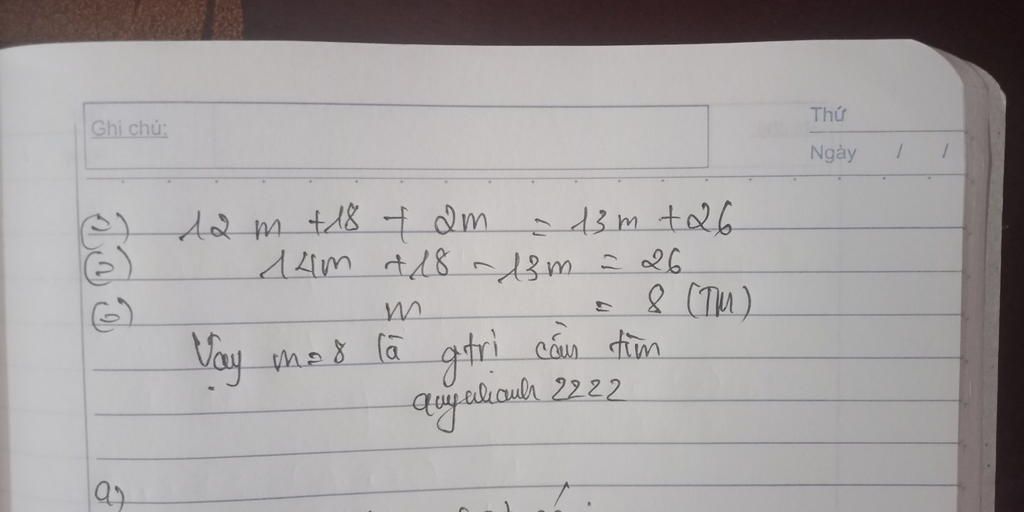 Ghi chú:
Thứ
Ngày / /
(=) 12m + 18 + 2m = 13m + 26
(=) 14m + 18 - 13m = 26
(=) m = 8 (TM)
Vậy m = 8 là gtrị cần tìm
2222
a)